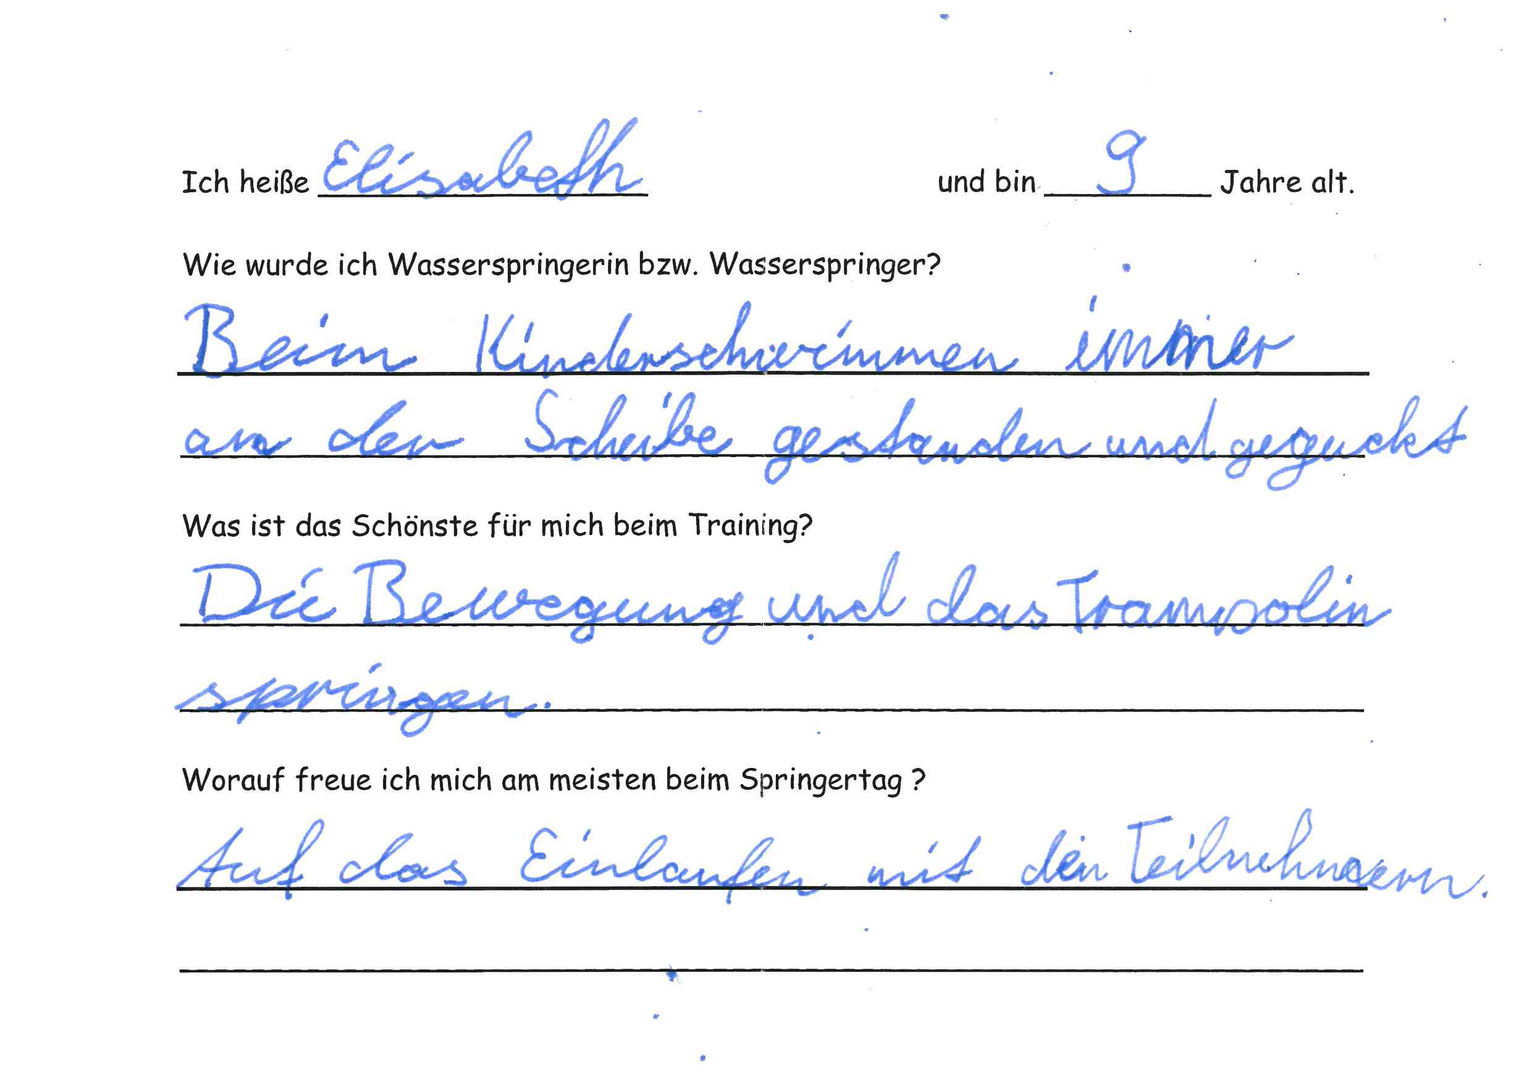 Ich heiße Elisabeth und bin 9 Jahre alt.
Wie wurde ich Wasserspringerin bzw. Wasserspringer?
Beim Kinderschwimmen immer
an der Scheibe gestanden und geguckt
Was ist das Schönste für mich beim Training?
Die Bewegung und das Trampolin
springen.
Worauf freue ich mich am meisten beim Springertag ?
Auf das Einlaufen mit den Teilnehmern.